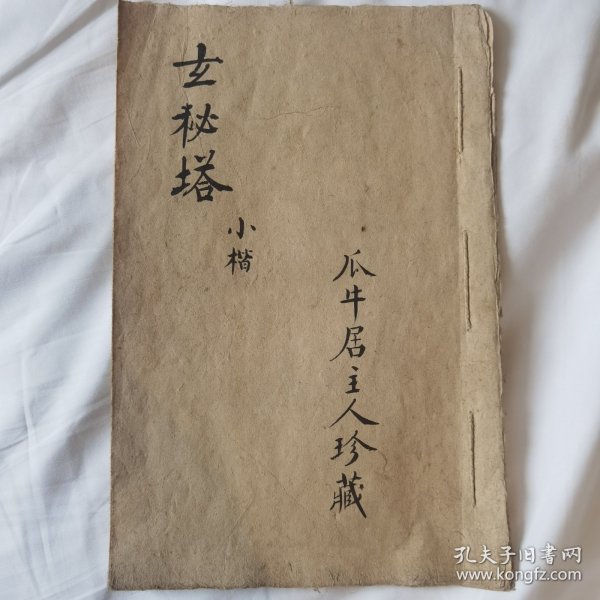 玄秘塔
小楷
瓜牛居主人珍藏
孔夫子旧书网
www.kongfz.com